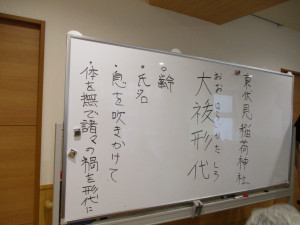 東伏見稲荷神社
おおはらへかたしろ
大祓形代
・齢
・氏名
・息を吹きかけて
・体を撫で諸々の禍を形代に